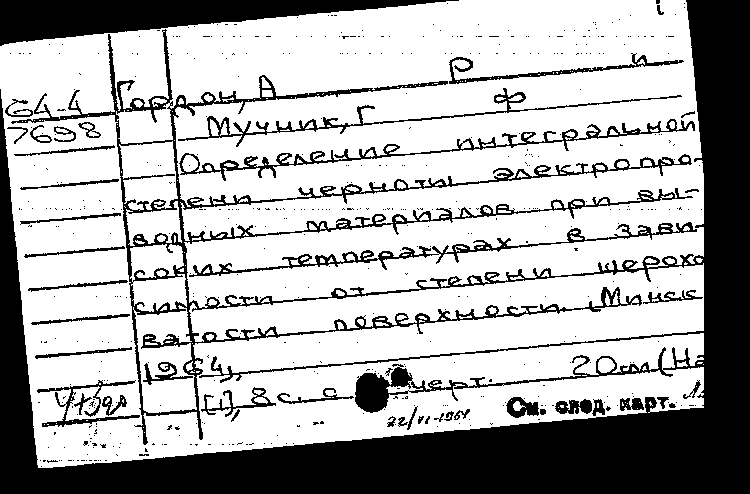 64-4 Гордон, А Р и
7698 Мучник, Г Ф
Определение интегральной
степени черноты электропро-
водных материалов при вы-
соких температурах в зави-
симости от степени шерохо
ватости поверхности. [Минск
1964],
[1], 8 с. с черт. 20 см (На
22/VI-1964 См. след. карт.